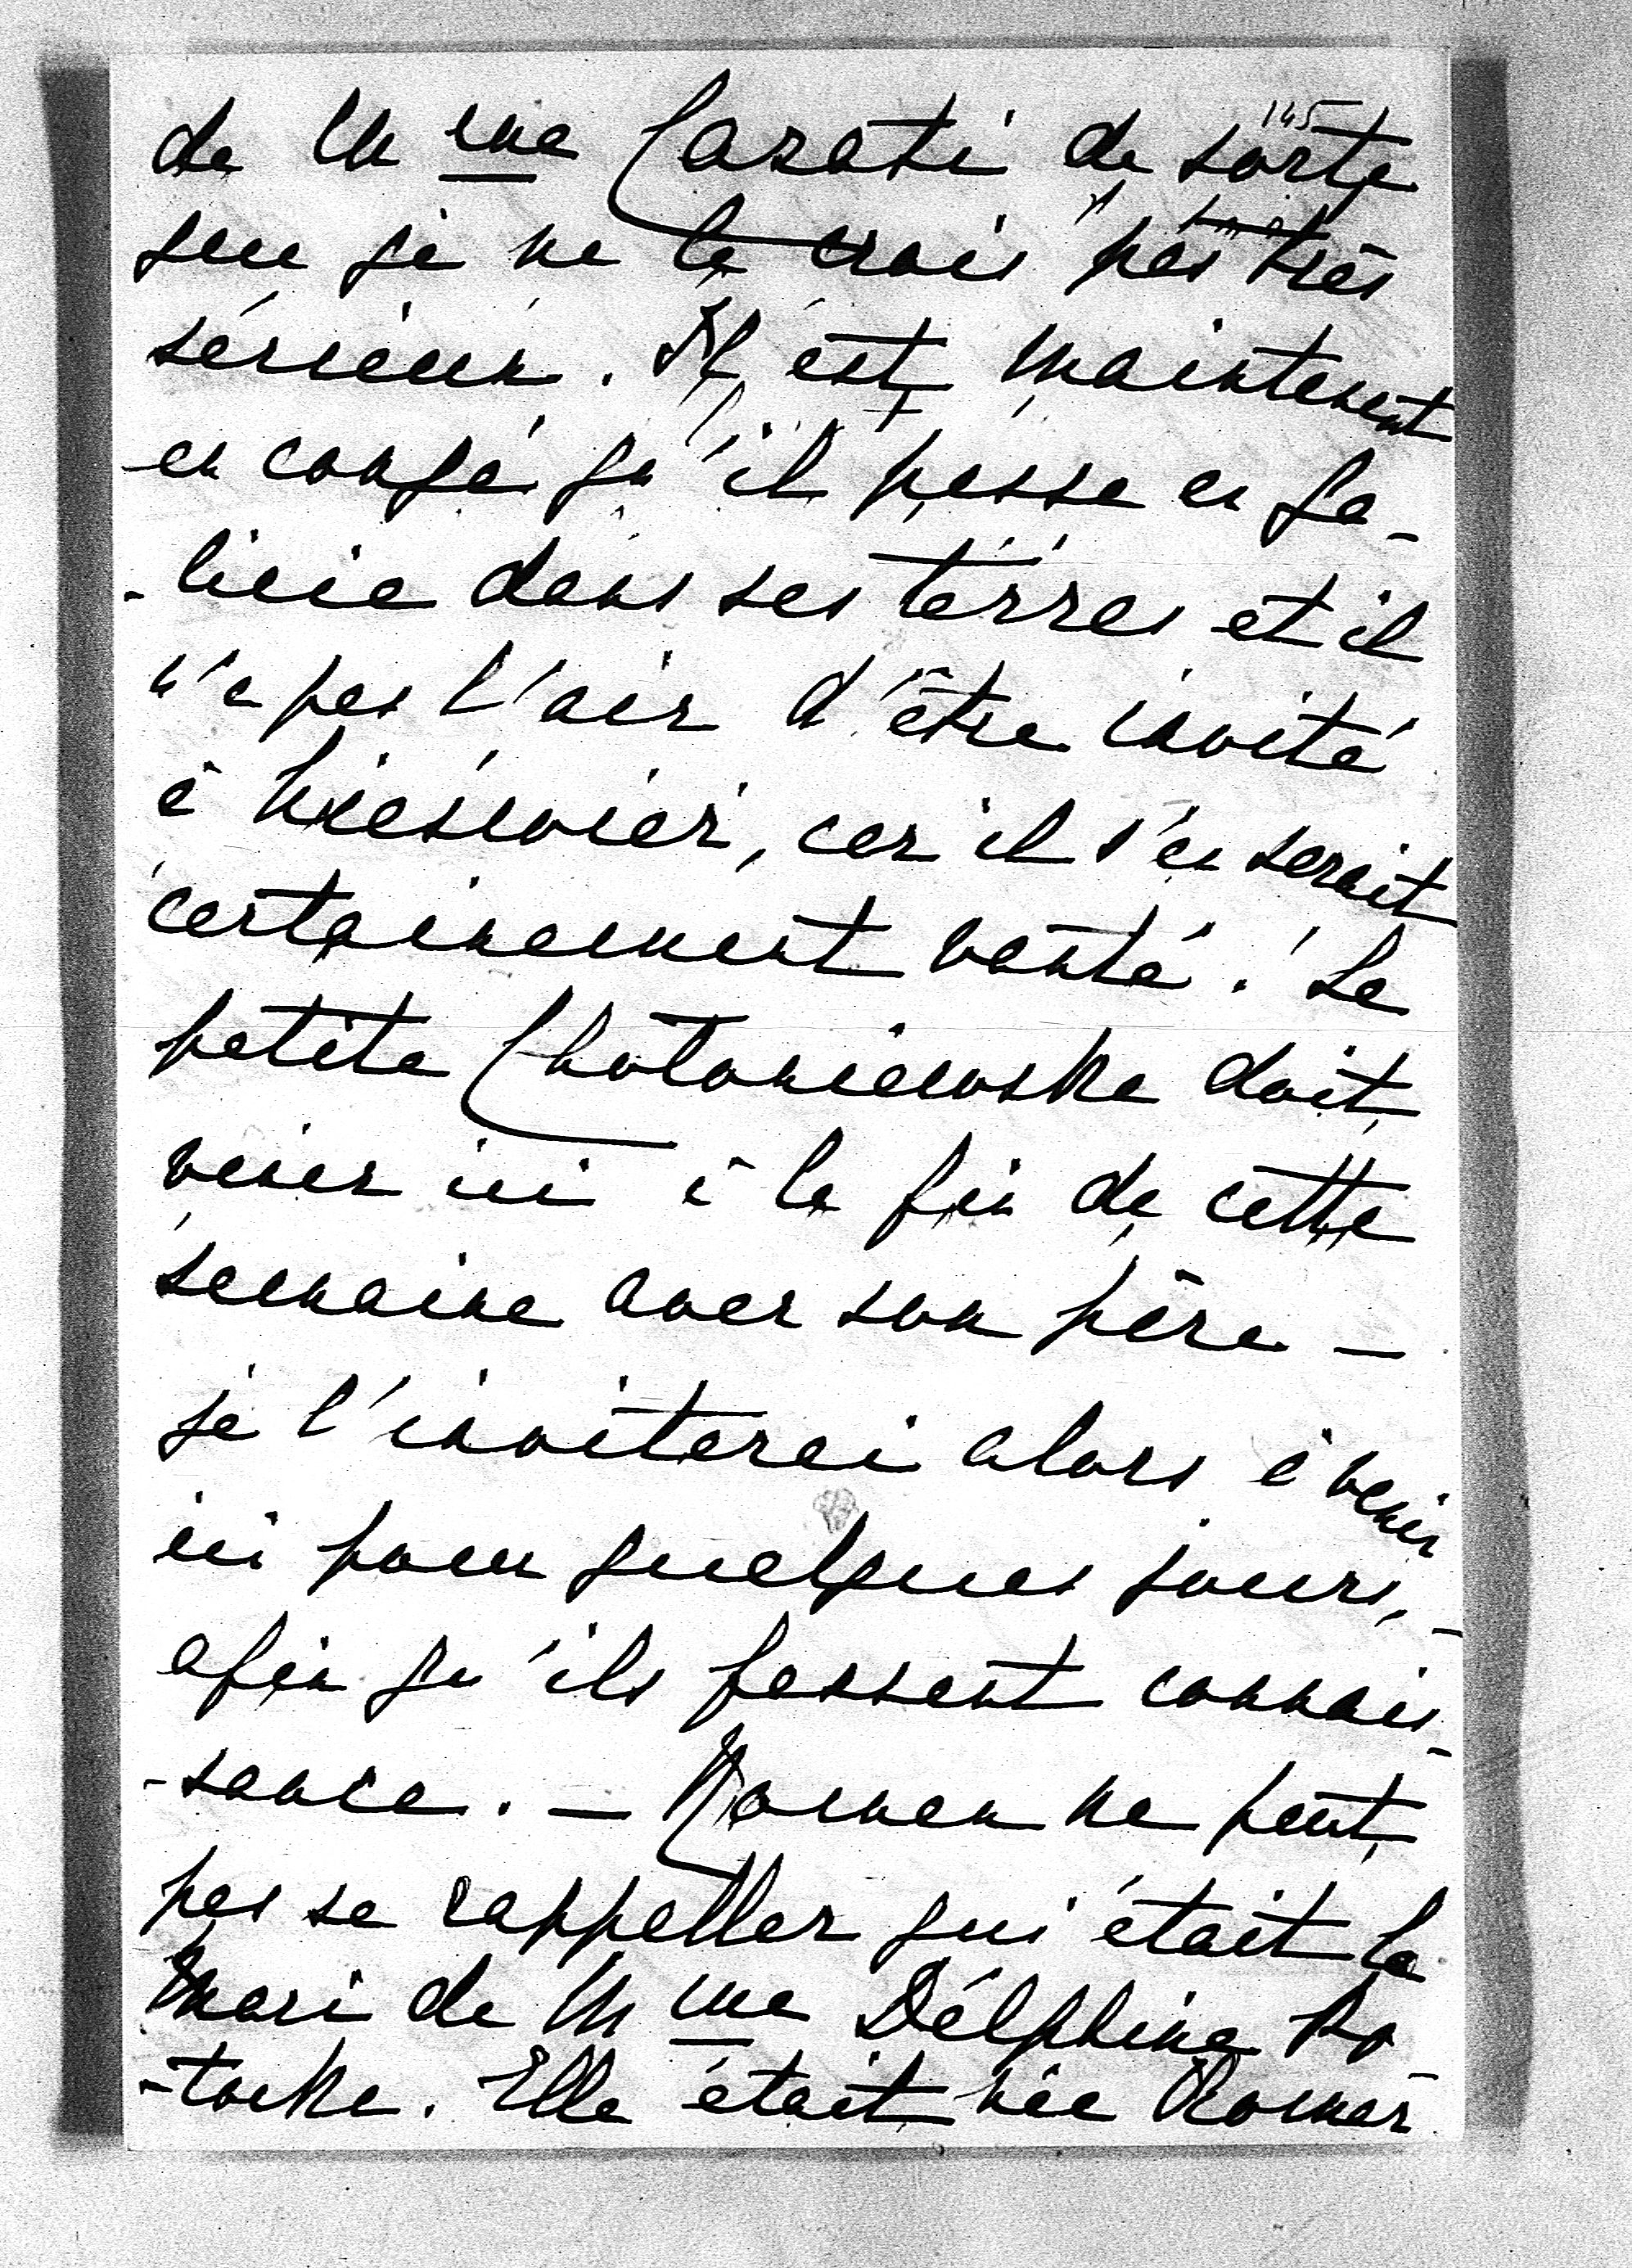 145
de Mme Casati de sorte
que je ne le crois pas très
sérieux. Il est maintenant
en congé qu'il passe en Ga-
-licie dans ses terres et il
n'a pas l'air d'être invité
à Nieśwież, car il s'en serait
certainement vanté. La
petite Chołoniewska doit
venir ici à la fin de cette
semaine avec son père —
je l'inviterai alors à venir
ici pour quelques jours,-
afin qu'ils fassent connais-
-sance. — Maman ne peut
pas se rappeller qui était le
mari de Mme Délphine Po-
-tocka. Elle était née Komar